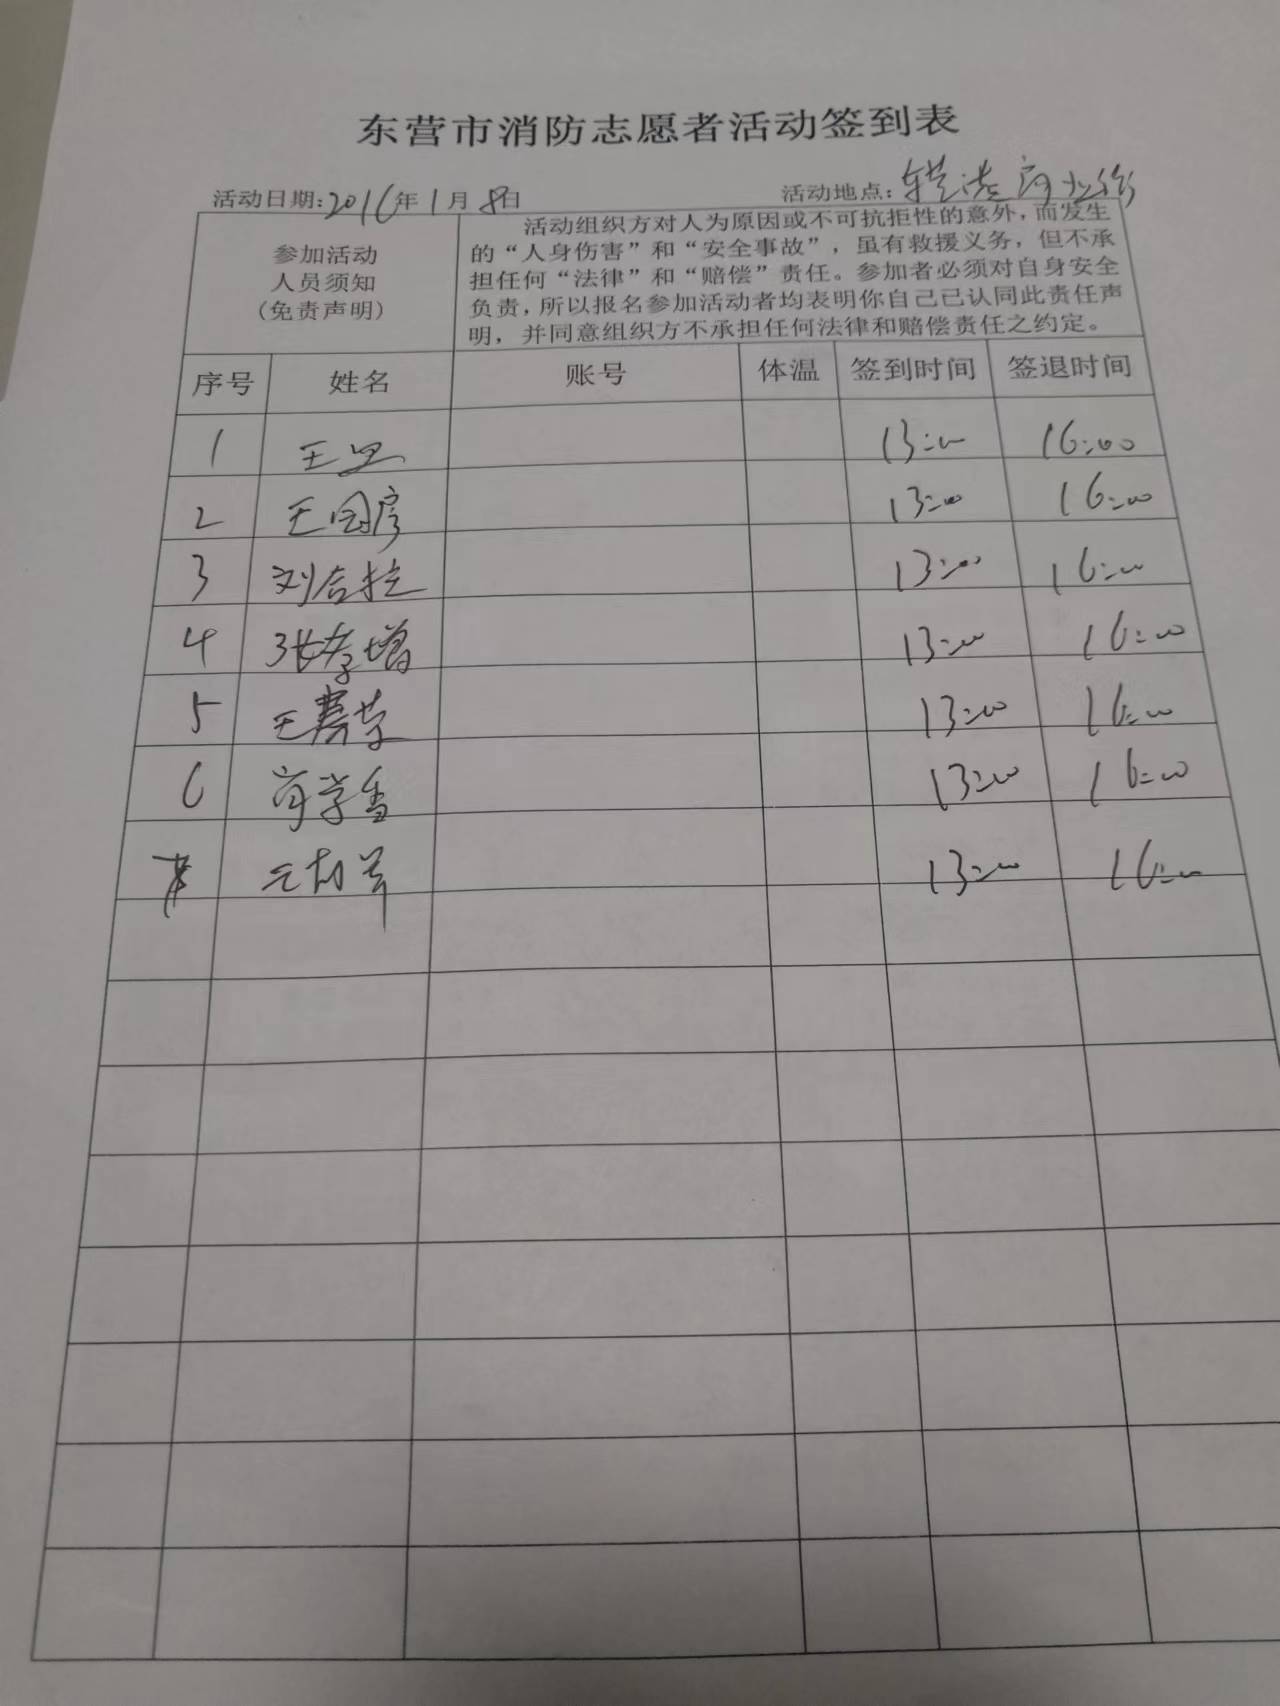 东营市消防志愿者活动签到表
活动日期:2016年1月8日 活动地点:
参加活动
人员须知
(免责声明)
活动组织方对人为原因或不可抗拒性的意外,而发生
的“人身伤害”和“安全事故”,虽有救援义务,但不承
担任何“法律”和“赔偿”责任。参加者必须对自身安全
负责,所以报名参加活动者均表明你自己已认同此责任声
明,并同意组织方不承担任何法律和赔偿责任之约定。
序号 姓名 账号 体温 签到时间 签退时间
1 王 13:00 16:00
2 王国 13:00 16:00
3 刘合 13:00 16:00
4 张孝增 13:00 16:00
5 王 13:00 16:00
6 学香 13:00 16:00
13:00 16:00